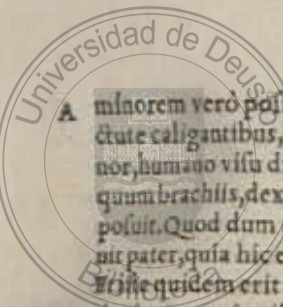 Universidad de Deusto
Biblioteca
A minorem verò pos
ctute caligantibus,
nor, humano visu d
quum brachiis, dex
posuit. Quod dum
uit pater, quia hic e
quidem erit